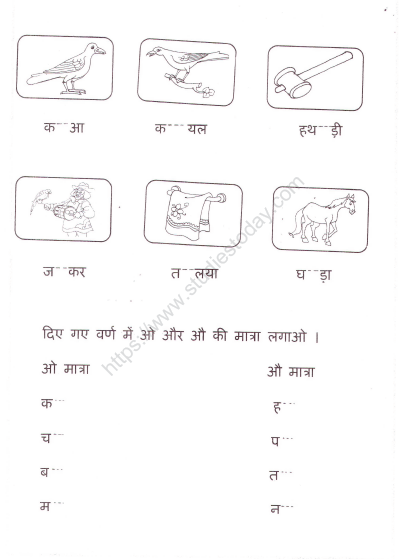 क---आ क---यल हथ---ड़ी
ज---कर त---लया घ---ड़ा
https://www.studiestoday.com
दिए गए वर्ण में ओ और औ की मात्रा लगाओ ।
ओ मात्रा औ मात्रा
क--- ह---
च--- प---
ब--- त---
म--- न---